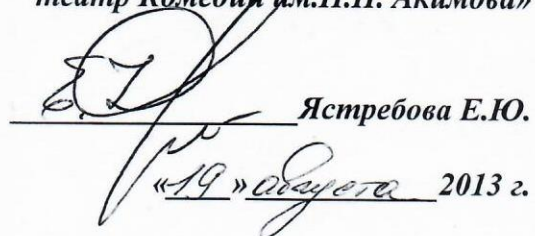 театр Комедии им.Н.П. Акимова»
Ястребова Е.Ю.
«19» августа 2013 г.